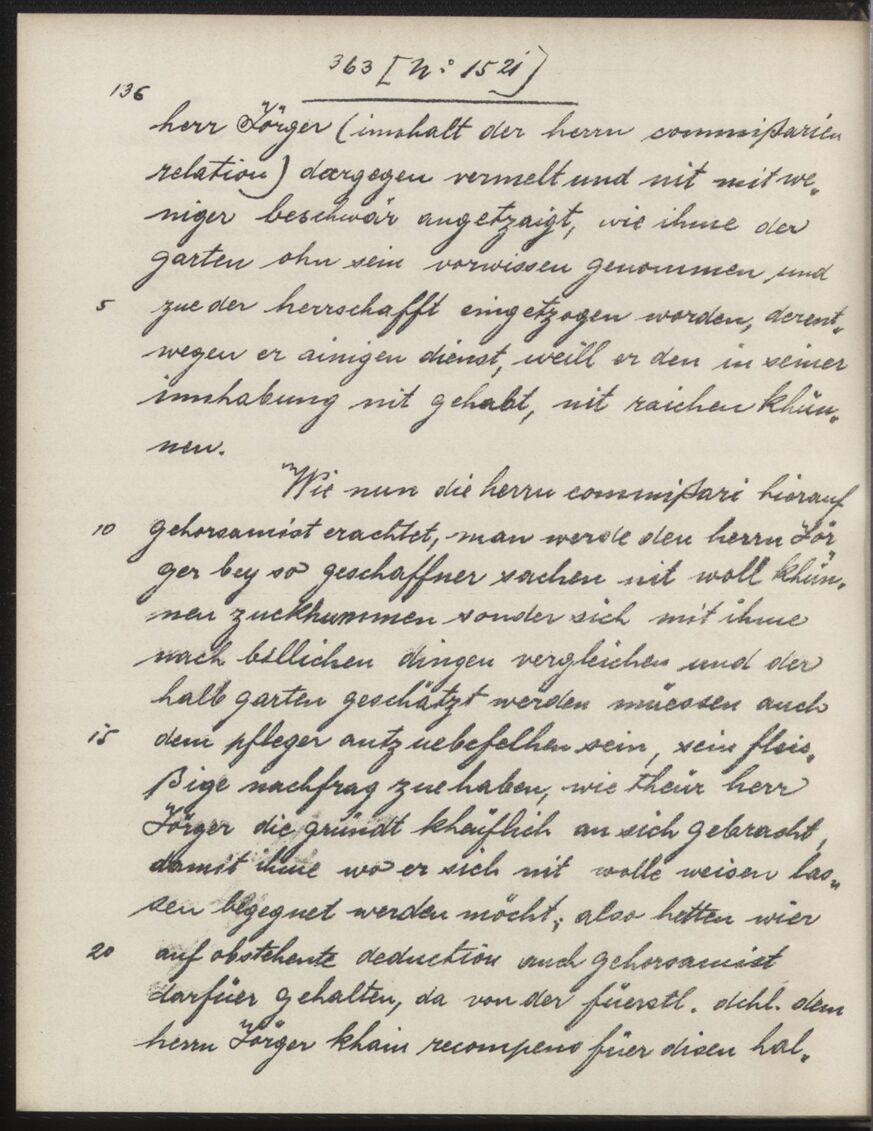 363 [N:o 1521]
136
herr Jörger (innhalt der herrn commißarien
relation) dargegen vermelt und nit mit we„
niger beschwär angetzaigt, wie ihme der
garten ohn sein vorwissen genommen und
5 zue der herrschafft eingetzogen worden, derent„
wegen er ainigen dienst, weill er den in seiner
innhabung nit gehabt, nit raichen khün„
nen.
Wie nun die herrn commißari hierauf
10 gehorsamist erachtet, man werde den herrn Jör
ger bey so geschaffner sachen nit woll khün„
nen zuekhummen sonder sich mit ihme
nach billichen dingen vergleichen und der
halb garten geschätzt werden müessen auch
15 dem pfleger antzuebefelhen sein, sein fleis„
ßige nachfrag zue haben, wie theür herr
Jörger die gründt kheüflich an sich gebracht,
damit ihme wo er sich nit wolle weisen las„
sen begegnet werden möcht; also hetten wier
20 auf obstehente deduction auch gehorsamist
darfüer gehalten, da von der füerstl. dchl. dem
herrn Jörger khain recompens füer disen hal„